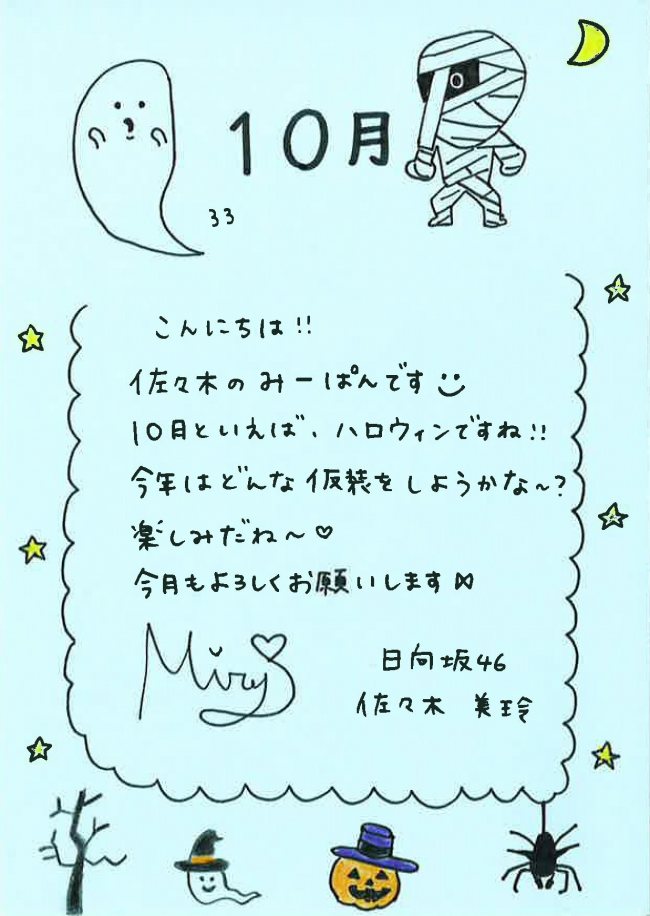 10月
33
こんにちは!!
佐々木のみーぱんです
10月といえば、ハロウィンですね!!
今年はどんな仮装をしようかな〜?
楽しみだね〜♡
今月もよろしくお願いします
Mirei
日向坂46
佐々木 美玲